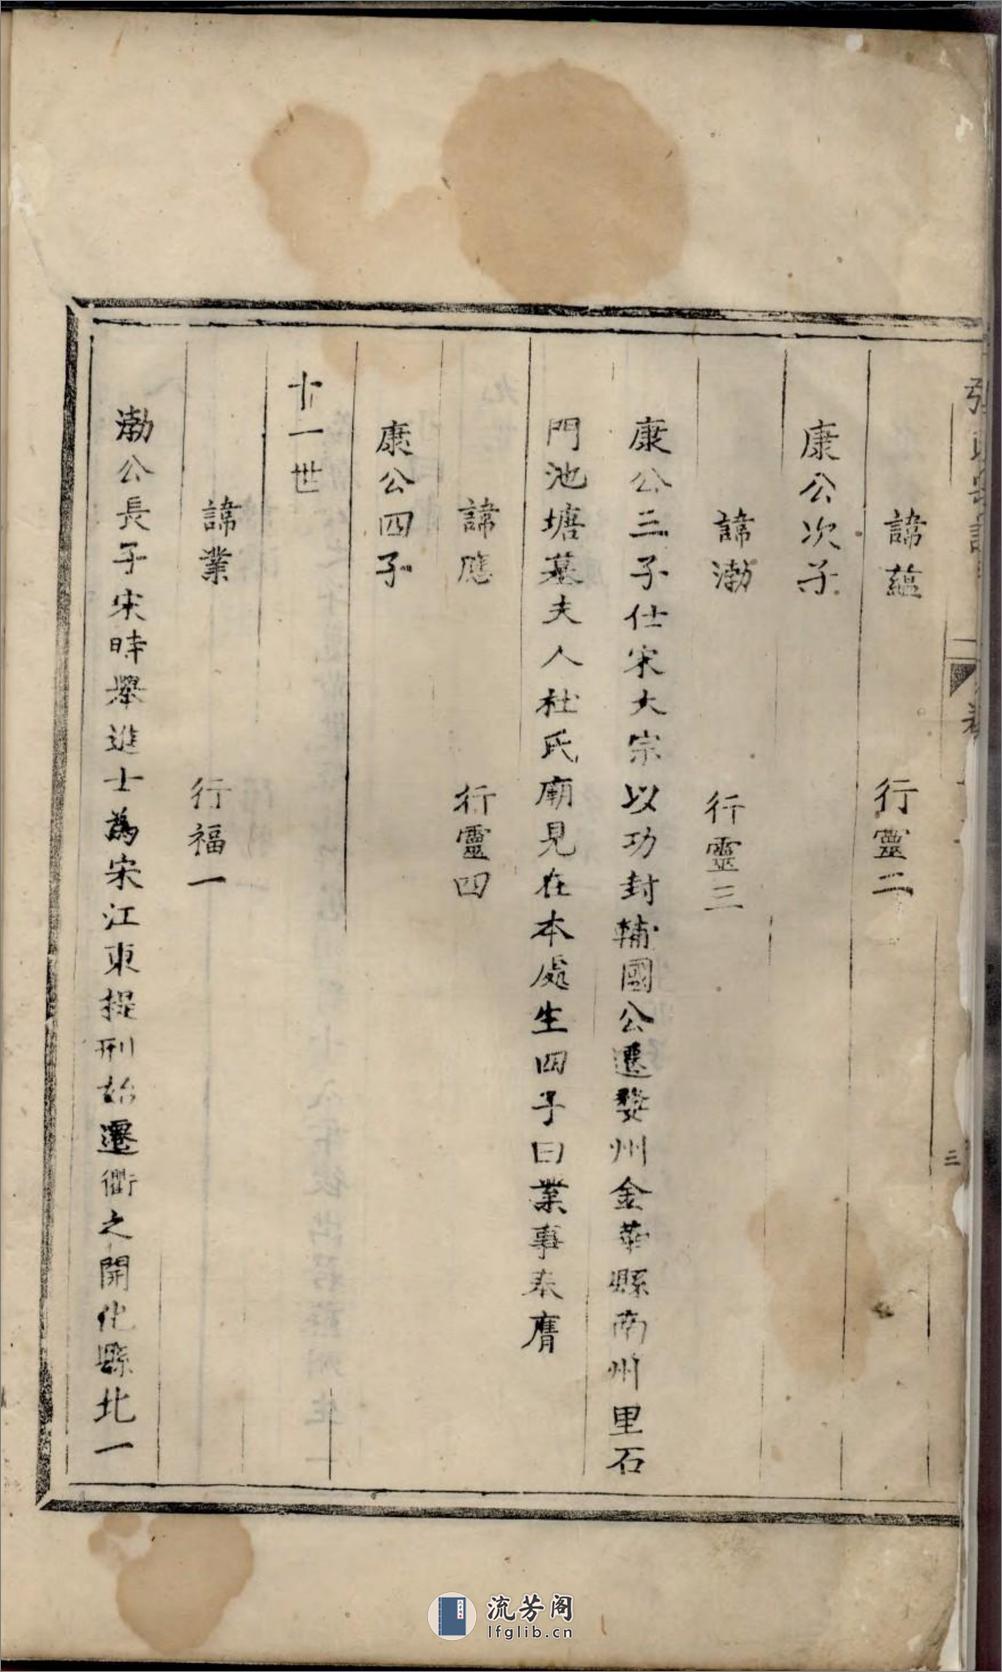 諱蘊 行靈二
康公次子
諱渤 行靈三
康公三子仕宋大宗以功封輔國公遷婺州金華縣南州里石
門池塘墓夫人杜氏廟見在本處生四子曰業事泰膺
諱應 行靈四
康公四子
十一世
諱業 行福一
渤公長子宋時舉進士為宋江東提刑始遷衢之開化縣北一
三
流芳阁
lfglib.cn